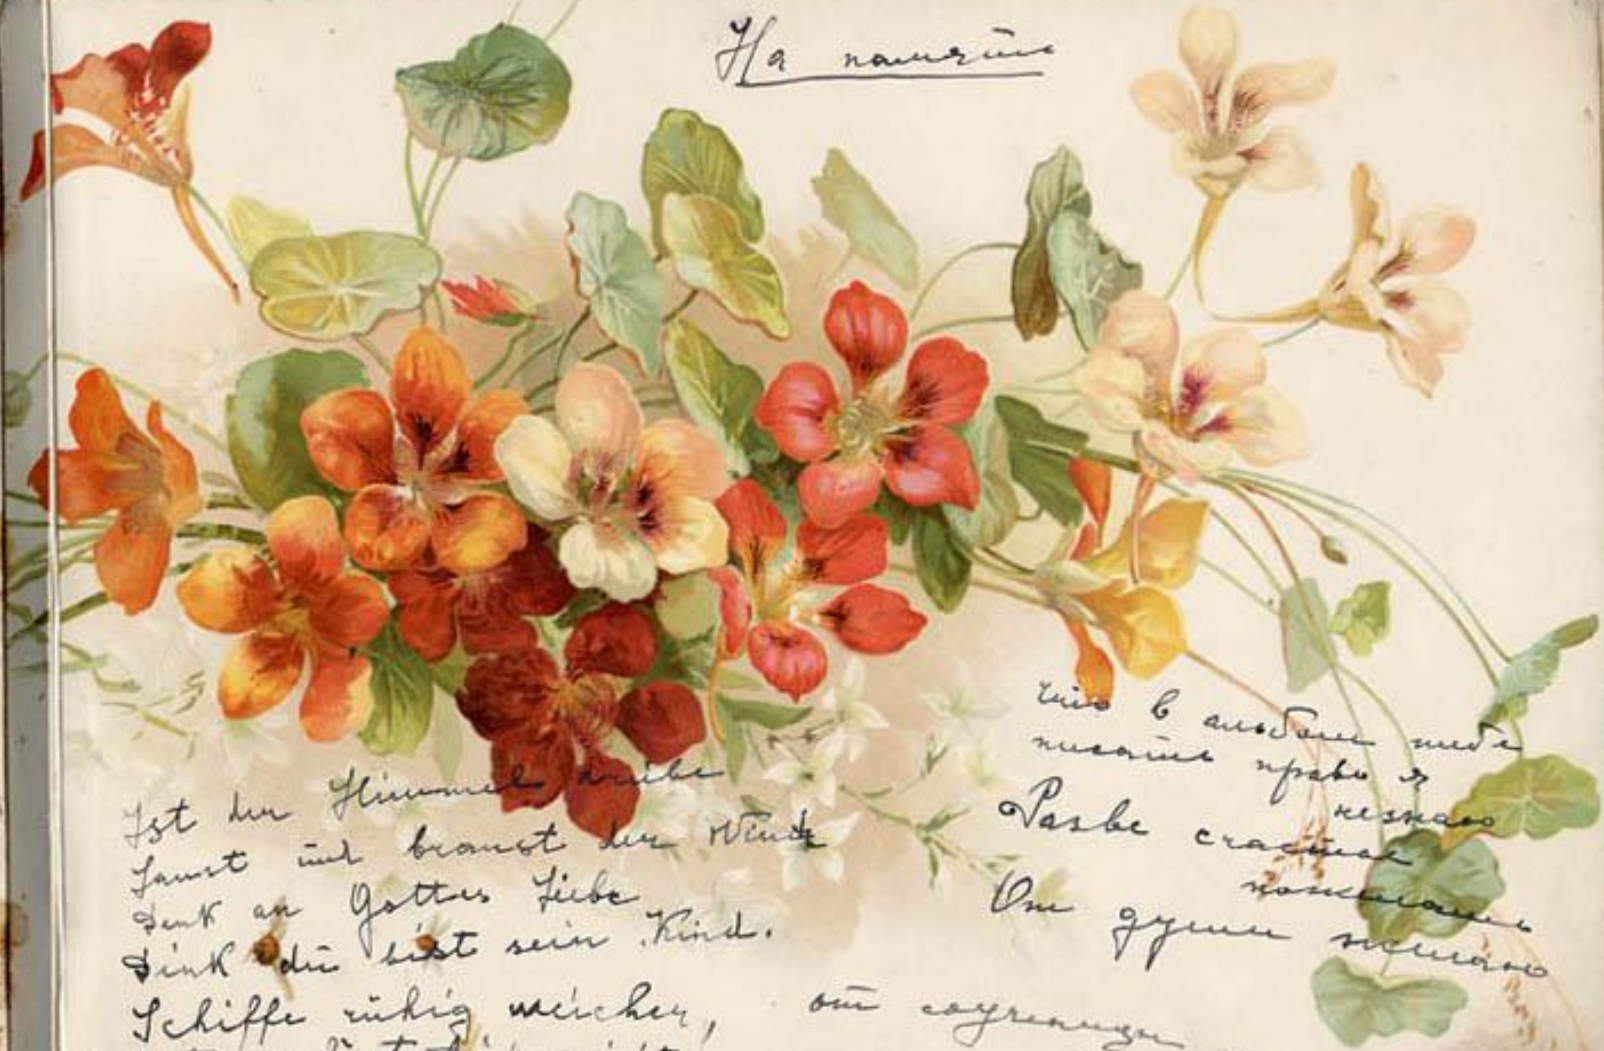 На память
Ist der Himmel trübe
Saust und braust der Wind
Denk an Gottes Liebe
Denk du bist sein Kind.
Schiffe ruhig weicher,
что в альбом тебе
писать право я
незнаю
Разве счастье
пожелать
От души желаю
от соученицы